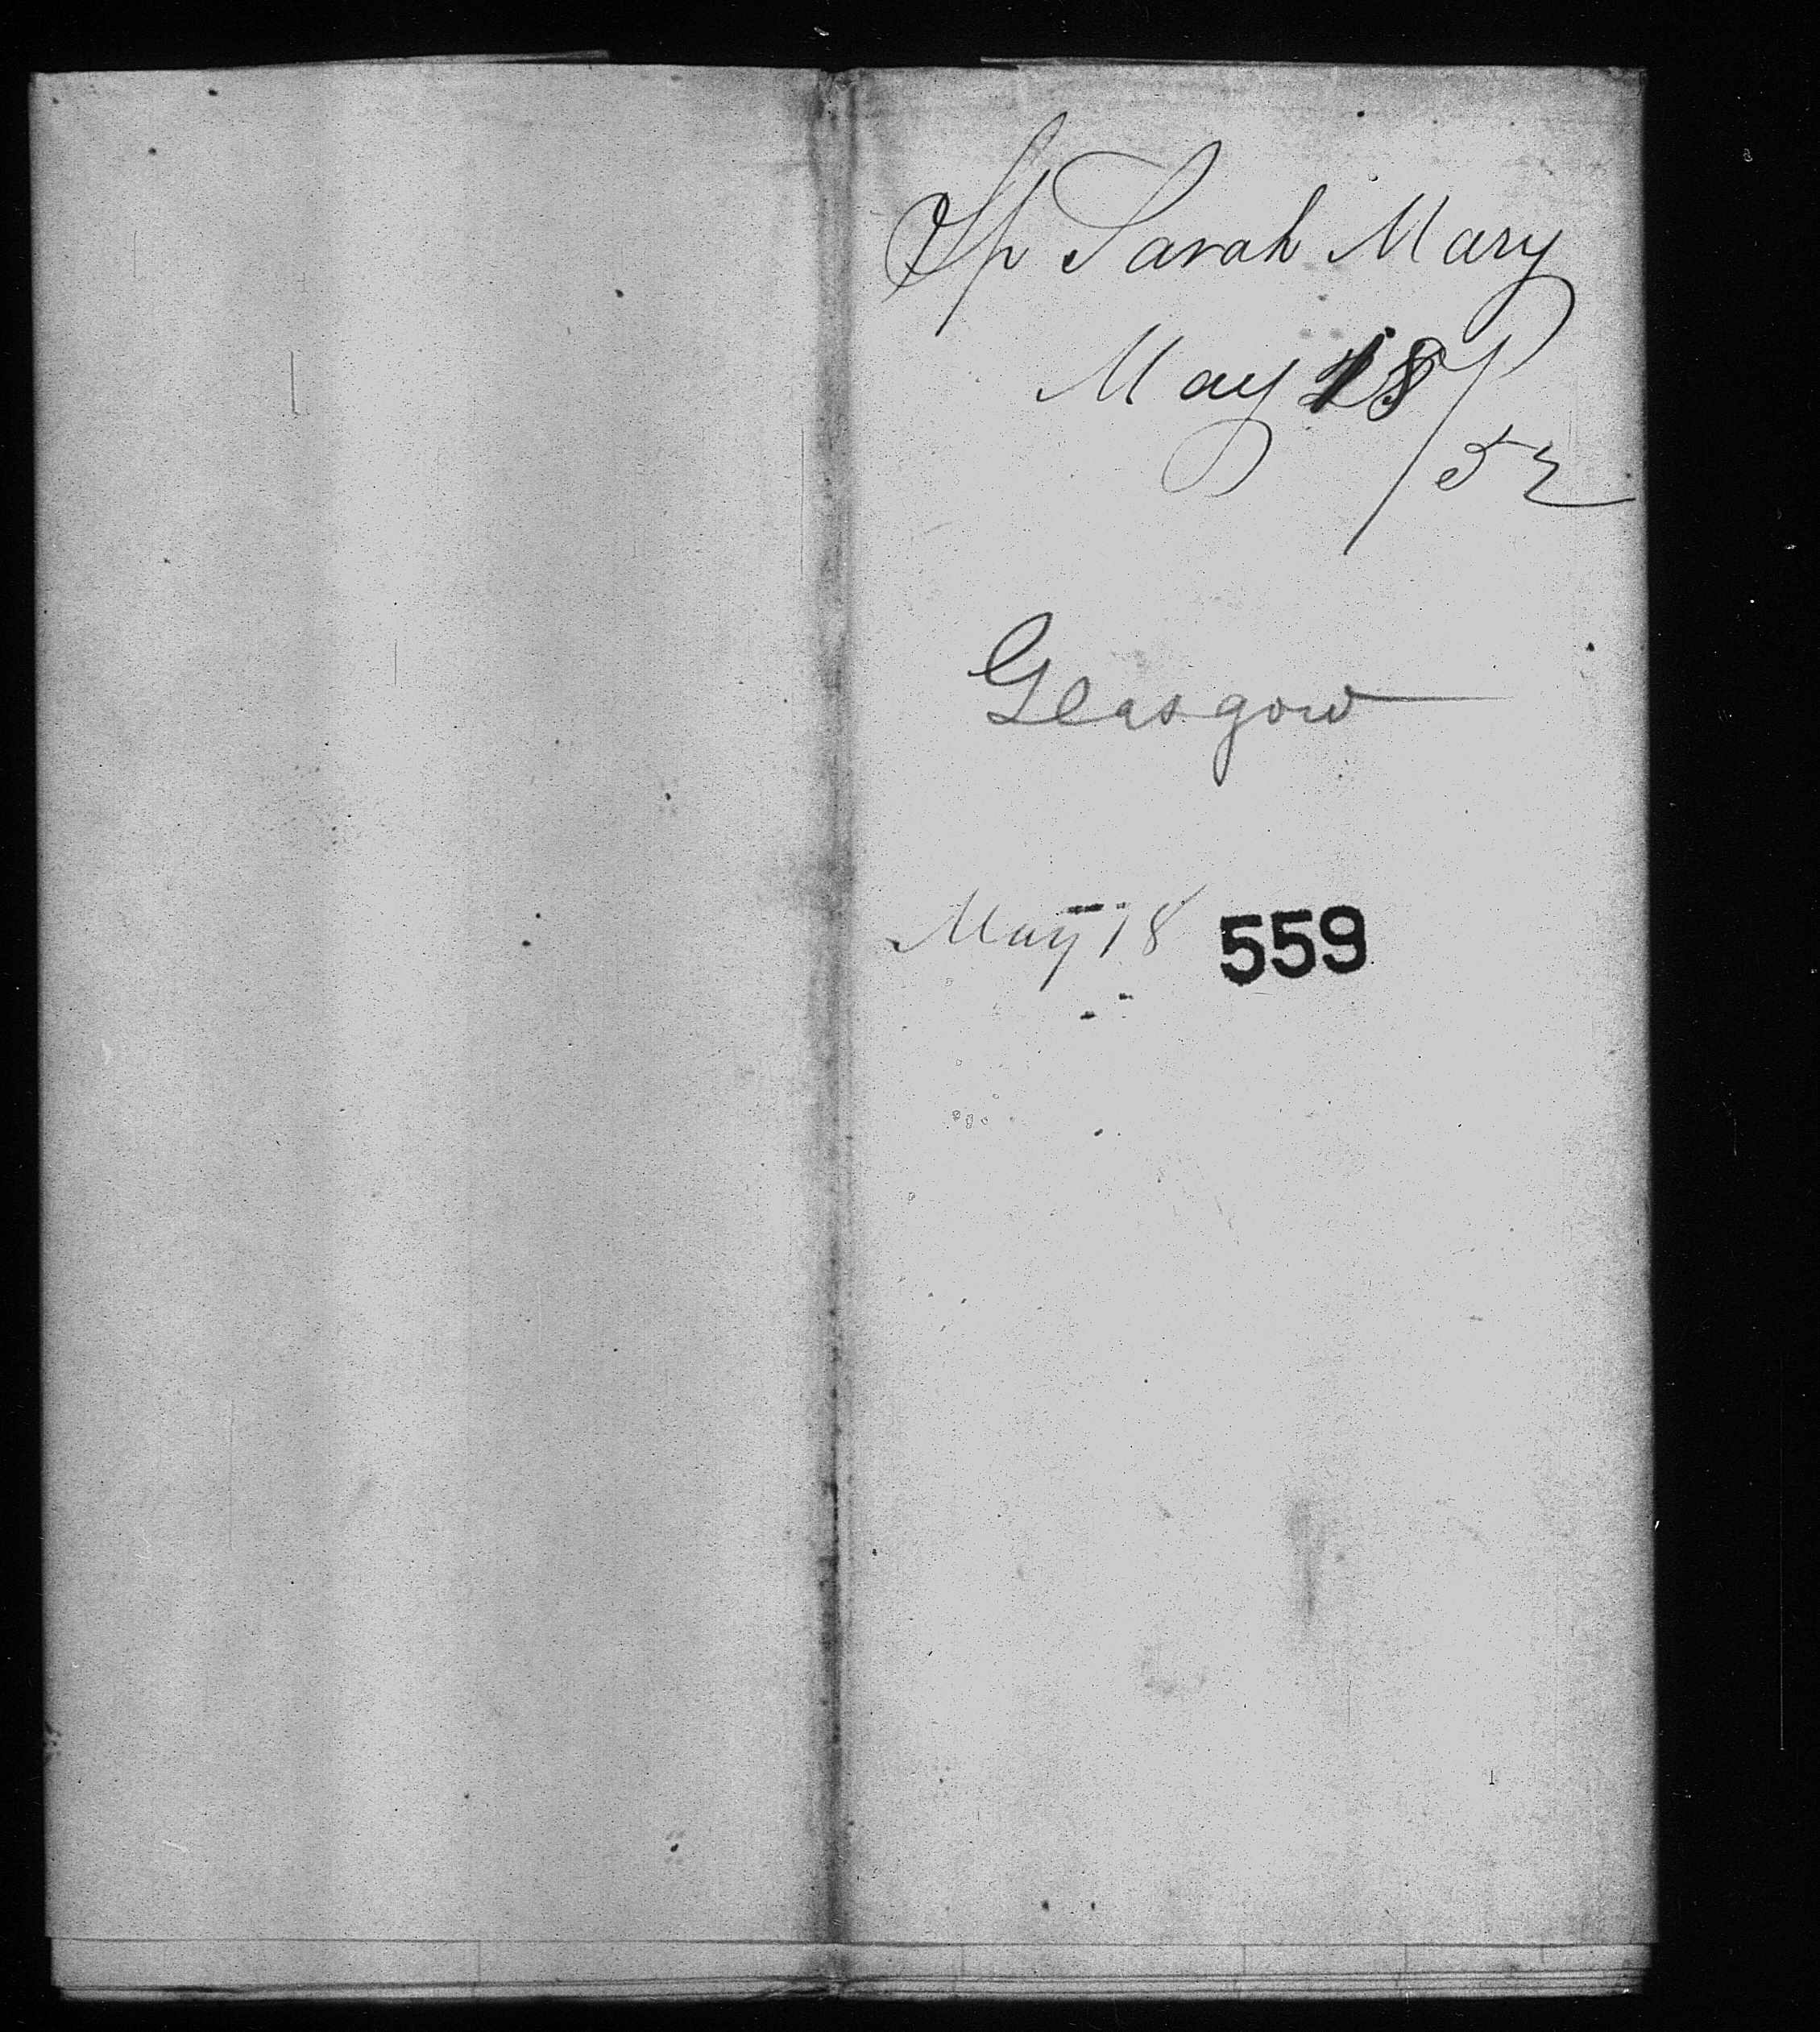 Sp Sarah Mary
May 18/
52
Glasgow
May 18 559